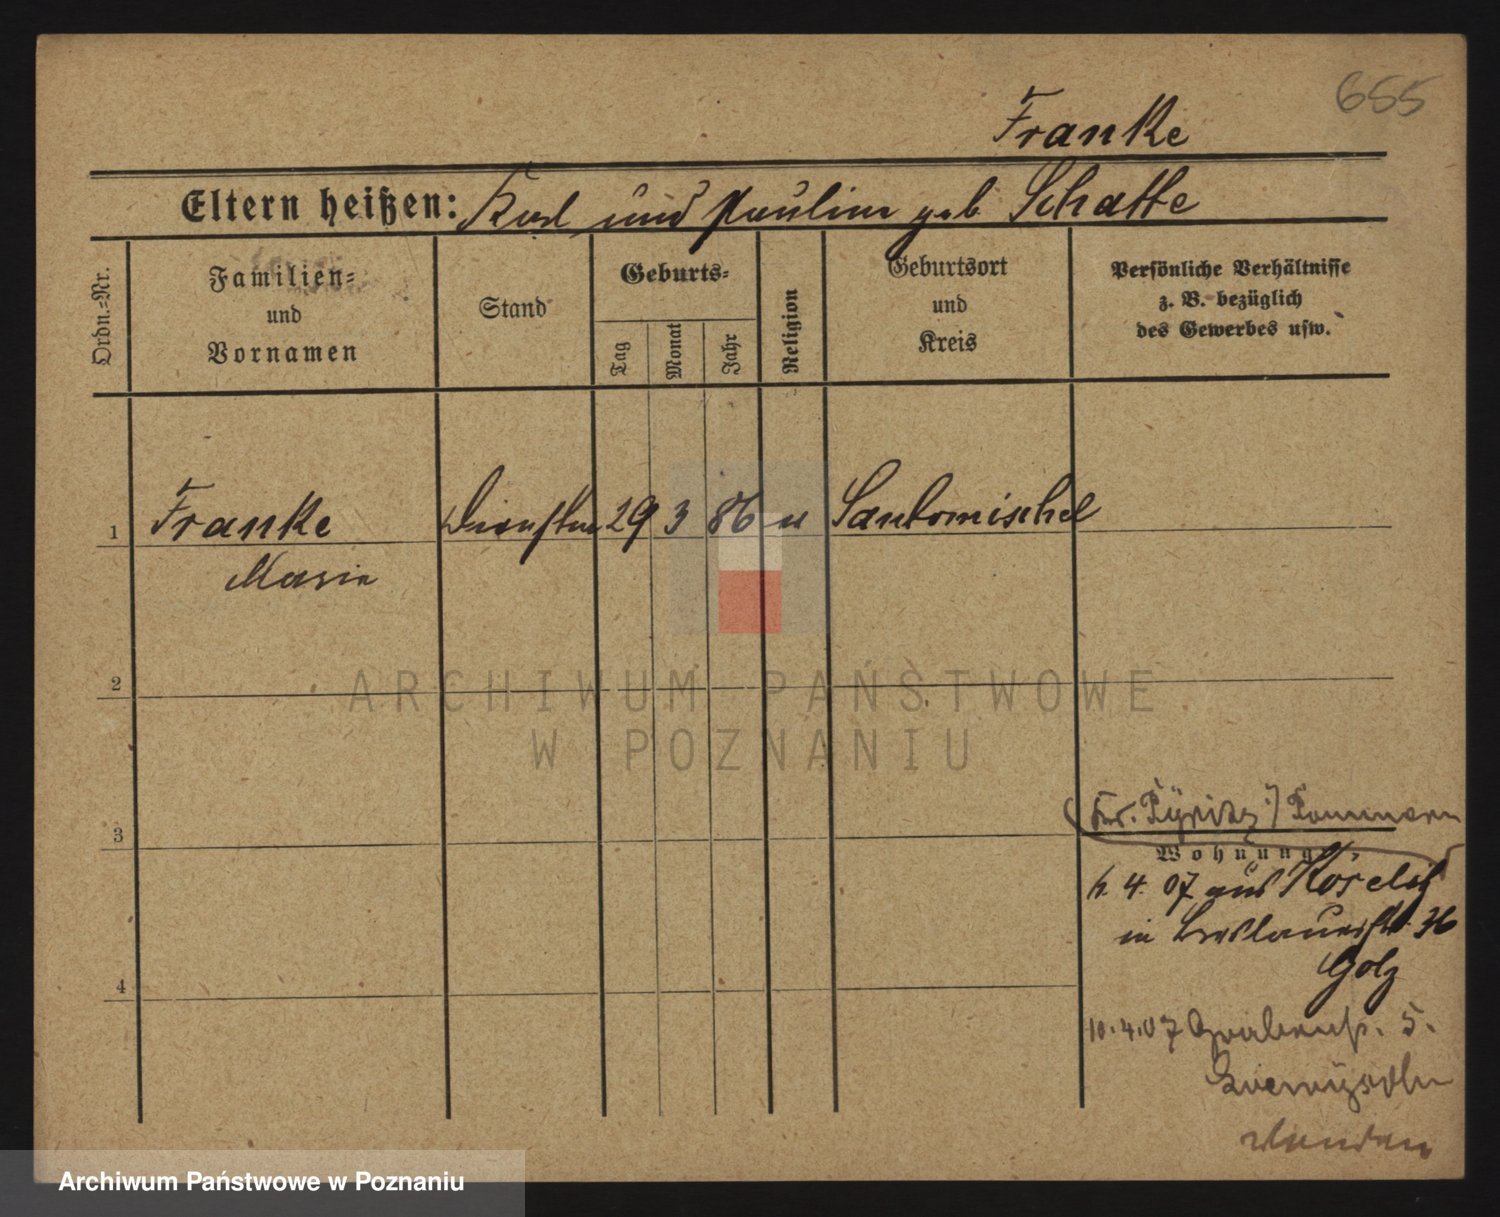 655
Franke
Eltern heißen: Karl und Pauline geb. Schatte
Ordn.-Nr.
Familien-
und
Vornamen
Stand
Geburts-
Tag
Monat
Jahr
Religion
Geburtsort
und
Kreis
Persönliche Verhältnisse
z. B. bezüglich
des Gewerbes usw.
1 Franke 29 3 86 Santomischel
Marie
2
3
Pyritz Pommern
Wohnung
4. 07 aus
in Breslauerstr. 36
4
Golz
10.4.07 Grabenstr. 5.
ARCHIWUM PAŃSTWOWE
W POZNANIU
Archiwum Państwowe w Poznaniu